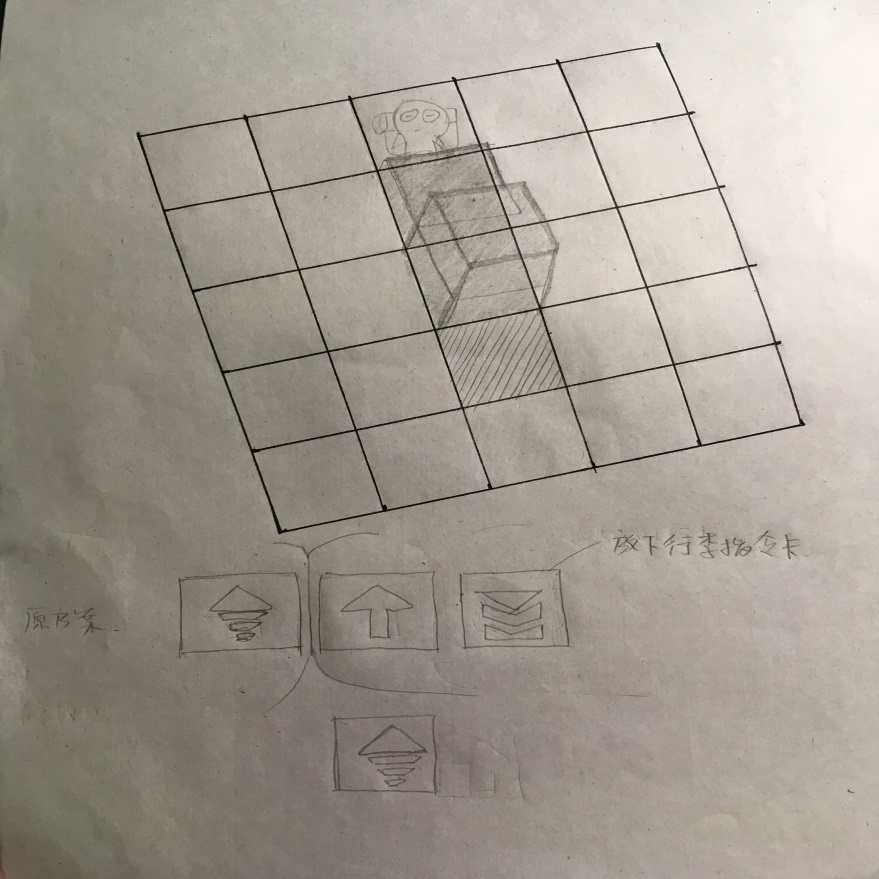 放下行李指令卡
原方案.